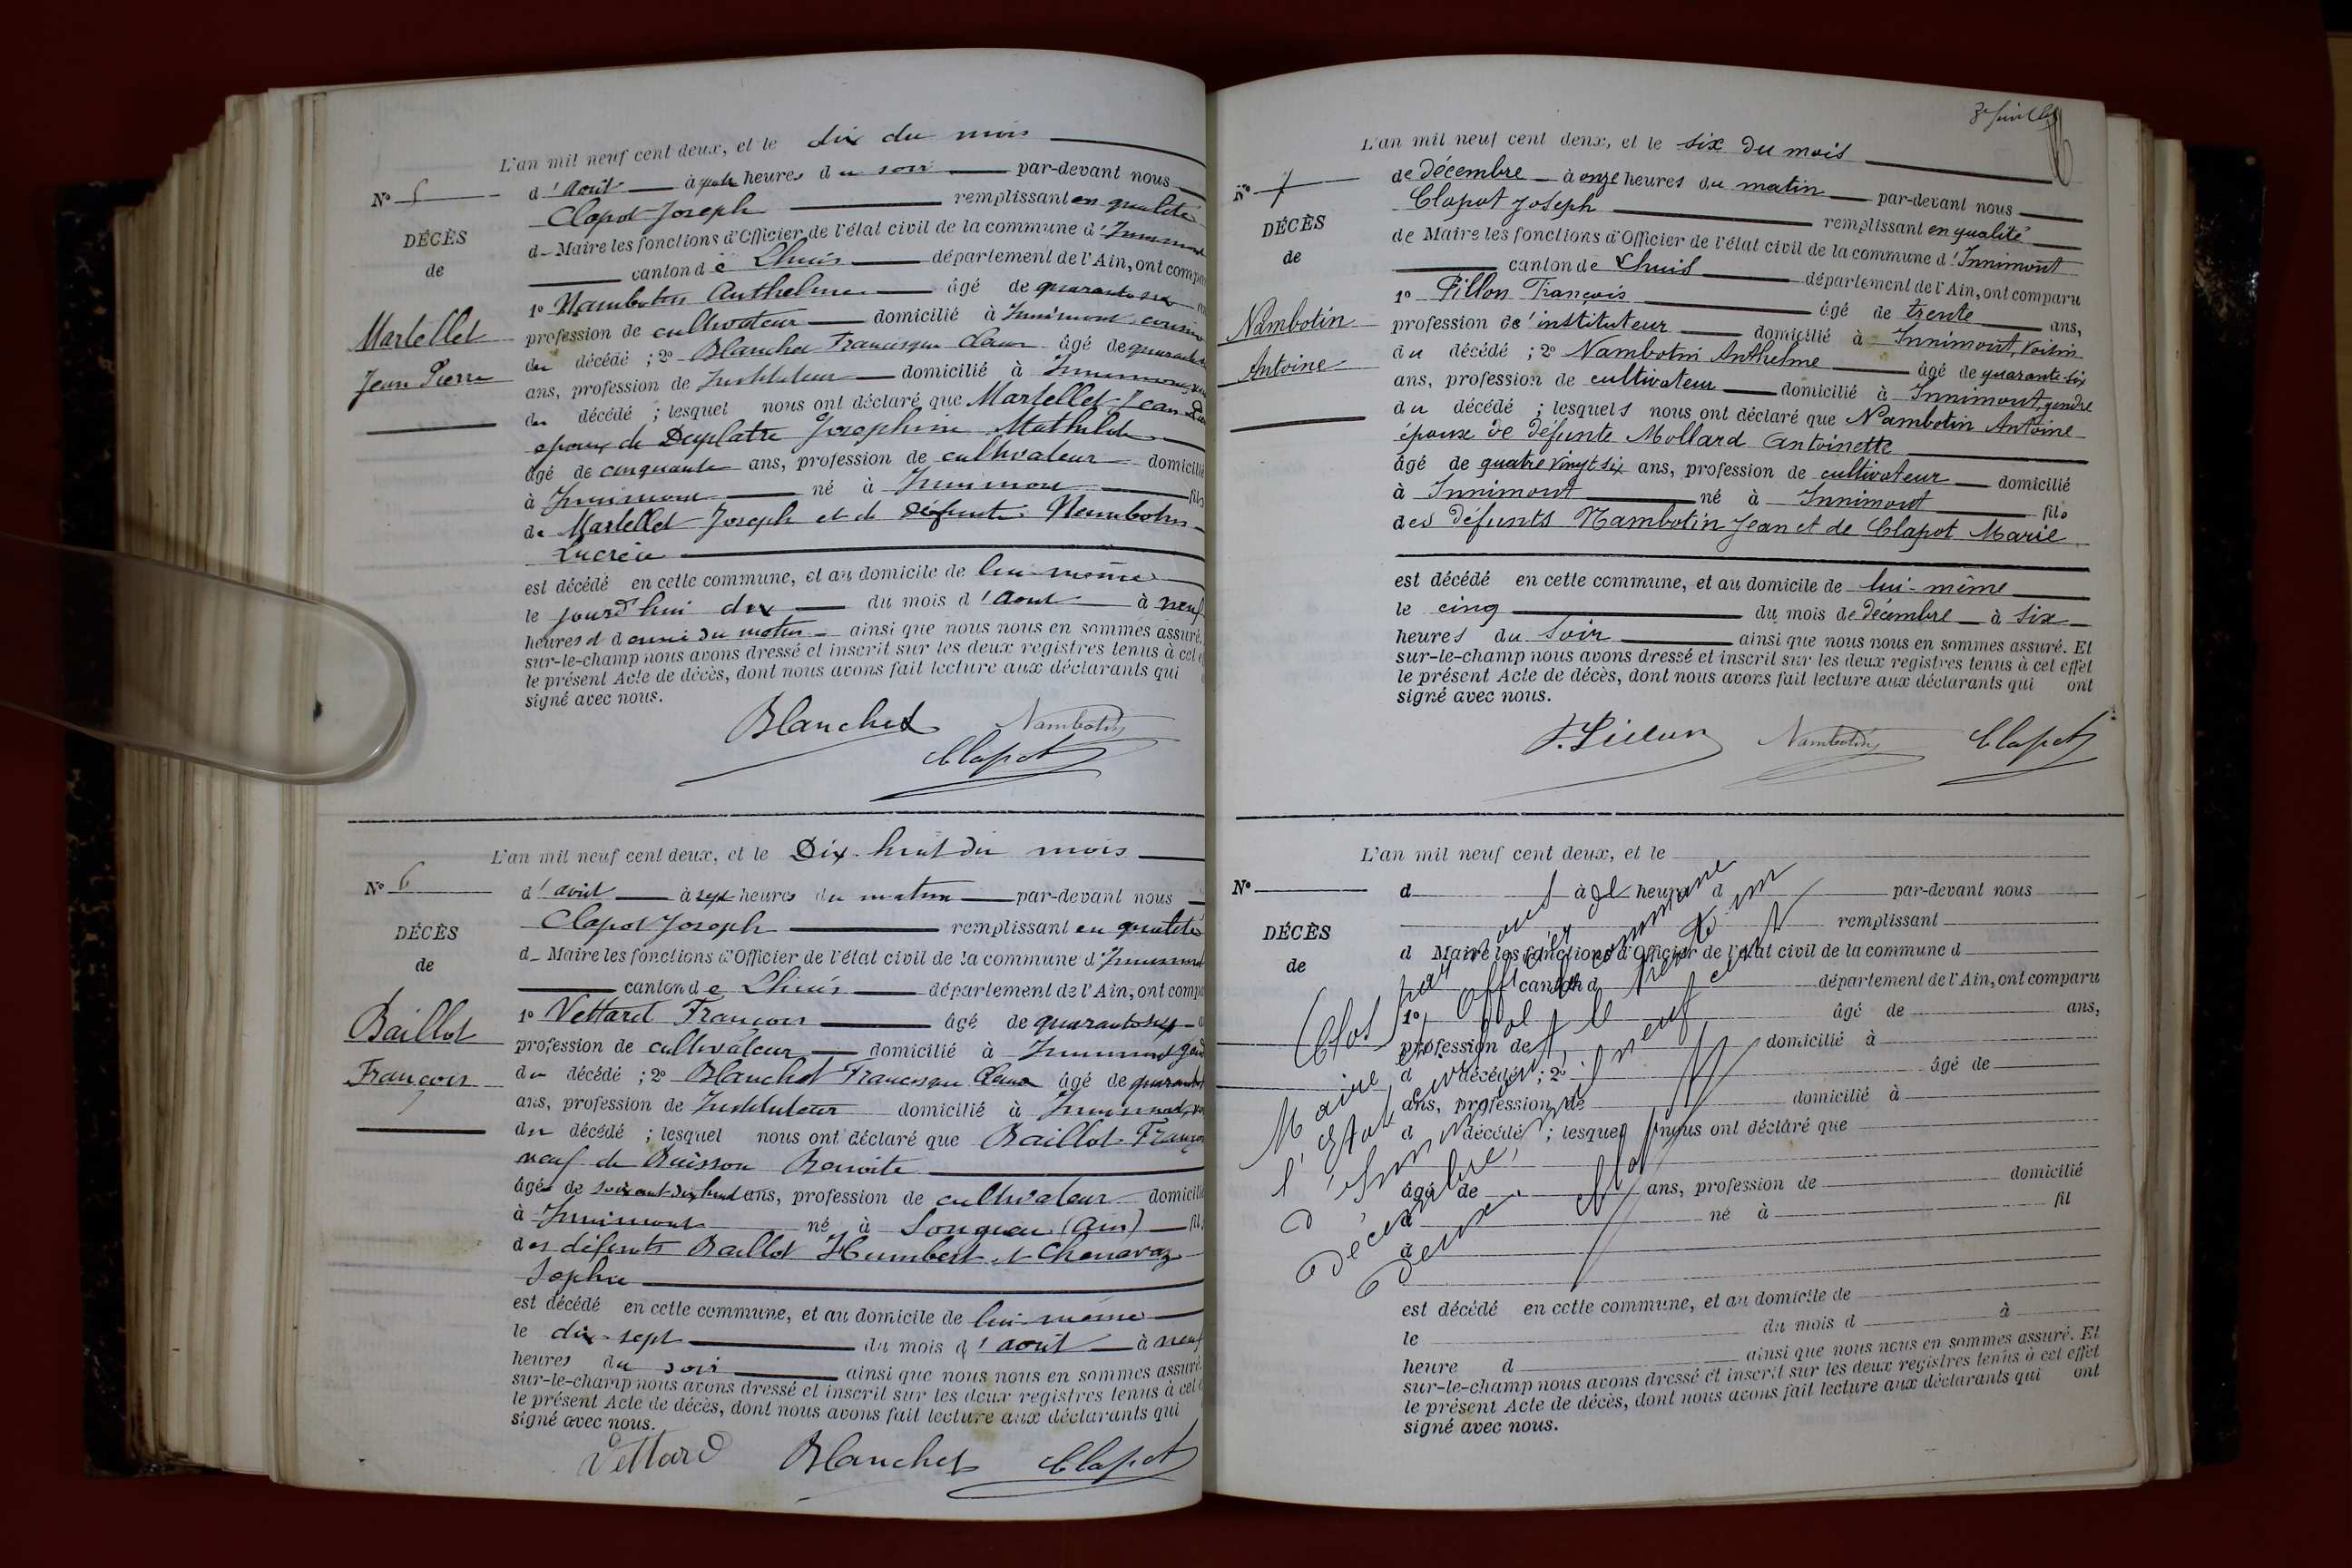 L'an mil neuf cent deux, et le dix du mois
d'Août à quatre heures du soir par-devant nous
Clapot Joseph remplissant en qualité
d Maire les fonctions d'Officier de l'état civil de la commune d'Innimont
canton de Lhuis département de l'Ain, ont compa
1º Nambotin Anthelme âgé de quarante six
profession de cultivateur domicilié à Innimont, cousin
du décédé ; 2º Blanchet Francisque âgé de quarante
ans, profession de Instituteur domicilié à Innimont
du décédé ; lesquel nous ont déclaré que Martellet Jean
époux de Deyplatre Josephine Mathilde
âgé de cinquante ans, profession de cultivateur domicilié
à Innimont né à Innimont fils
de Martellet Joseph et de défunte Nambotin
Lucrèce
est décédé en cette commune, et au domicile de lui-même
le jourd'hui dix du mois d'Aout à neuf
heures et demie du matin ainsi que nous nous en sommes assuré.
sur-le-champ nous avons dressé et inscrit sur les deux registres tenus à cet
le présent Acte de décès, dont nous avons fait lecture aux déclarants qui
signé avec nous.
Nº 5
DÉCÈS
de
Martellet
Jean Pierre
Blanchet Nambotin
Clapot
L'an mil neuf cent deux, et le Dix-huit du mois
d'août à sept heures du matin par-devant nous
Clapot Joseph remplissant en qualité
d Maire les fonctions d'Officier de l'état civil de la commune d'Innimont
canton de Lhuis département de l'Ain, ont compa
1º Vettard François âgé de quarante sept
profession de cultivateur domicilié à Innimont
du décédé ; 2º Blanchet Francisque âgé de quarante
ans, profession de Instituteur domicilié à Innimont
du décédé ; lesquel nous ont déclaré que Baillot François
veuf de Buisson Benoite
âgé de soixante-dix-huit ans, profession de cultivateur domicilié
à Innimont né à Songieu (Ain) fils
des défunts Baillot Humbert et Chenavaz
Sophie
est décédé en cette commune, et au domicile de lui-même
le dix-sept du mois d'août à neuf
heures du soir ainsi que nous nous en sommes assuré.
sur-le-champ nous avons dressé et inscrit sur les deux registres tenus à cet
le présent Acte de décès, dont nous avons fait lecture aux déclarants qui
signé avec nous.
Nº 6
DÉCÈS
de
Baillot
François
Vettard Blanchet Clapot
L'an mil neuf cent deux, et le six du mois
de décembre à onze heures du matin par-devant nous
Clapot Joseph remplissant en qualité
de Maire les fonctions d'Officier de l'état civil de la commune d'Innimont
canton de Lhuis département de l'Ain, ont comparu
1º Pillon François âgé de trente ans,
profession de instituteur domicilié à Innimont, voisin
du décédé ; 2º Nambotin Anthelme âgé de quarante-six
ans, profession de cultivateur domicilié à Innimont, gendre
du décédé ; lesquels nous ont déclaré que Nambotin Antoine
époux de défunte Mollard Antoinette
âgé de quatre vingt six ans, profession de cultivateur domicilié
à Innimont né à Innimont fils
des défunts Nambotin Jean et de Clapot Marie
est décédé en cette commune, et au domicile de lui-même
le cinq du mois de décembre à six
heures du soir ainsi que nous nous en sommes assuré. Et
sur-le-champ nous avons dressé et inscrit sur les deux registres tenus à cet effet
le présent Acte de décès, dont nous avons fait lecture aux déclarants qui ont
signé avec nous.
Nº 7
DÉCÈS
de
Nambotin
Antoine
F. Pillon Nambotin Clapot
L'an mil neuf cent deux, et le
d à heure d par-devant nous
remplissant
d Maire les fonctions d'Officier de l'état civil de la commune d
canton d département de l'Ain, ont comparu
1º âgé de ans,
profession de domicilié à
d décédé ; 2º âgé de
ans, profession de domicilié à
d décédé ; lesquel nous ont déclaré que
âgé de ans, profession de domicilié
à né à fil
d
est décédé en cette commune, et au domicile de
le du mois d à
heure d ainsi que nous nous en sommes assuré. Et
sur-le-champ nous avons dressé et inscrit sur les deux registres tenus à cet effet
le présent Acte de décès, dont nous avons fait lecture aux déclarants qui ont
signé avec nous.
Nº
DÉCÈS
de
Clos par nous
Maire, et officier de
l'état civil de la commune
d'Innimont le trente un
décembre, mil neuf cent
deux. Clapot